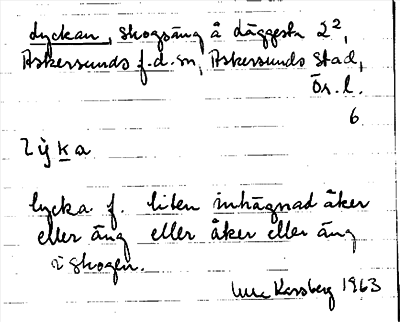 Lyckan, skogsäng å Läggesta 2²,
Askersunds f.d. sn, Askersunds stad,
Ör. l.
6
lyka
lycka f. liten inhägnad åker
eller äng eller åker eller äng
i skogen.
Karsberg 1963